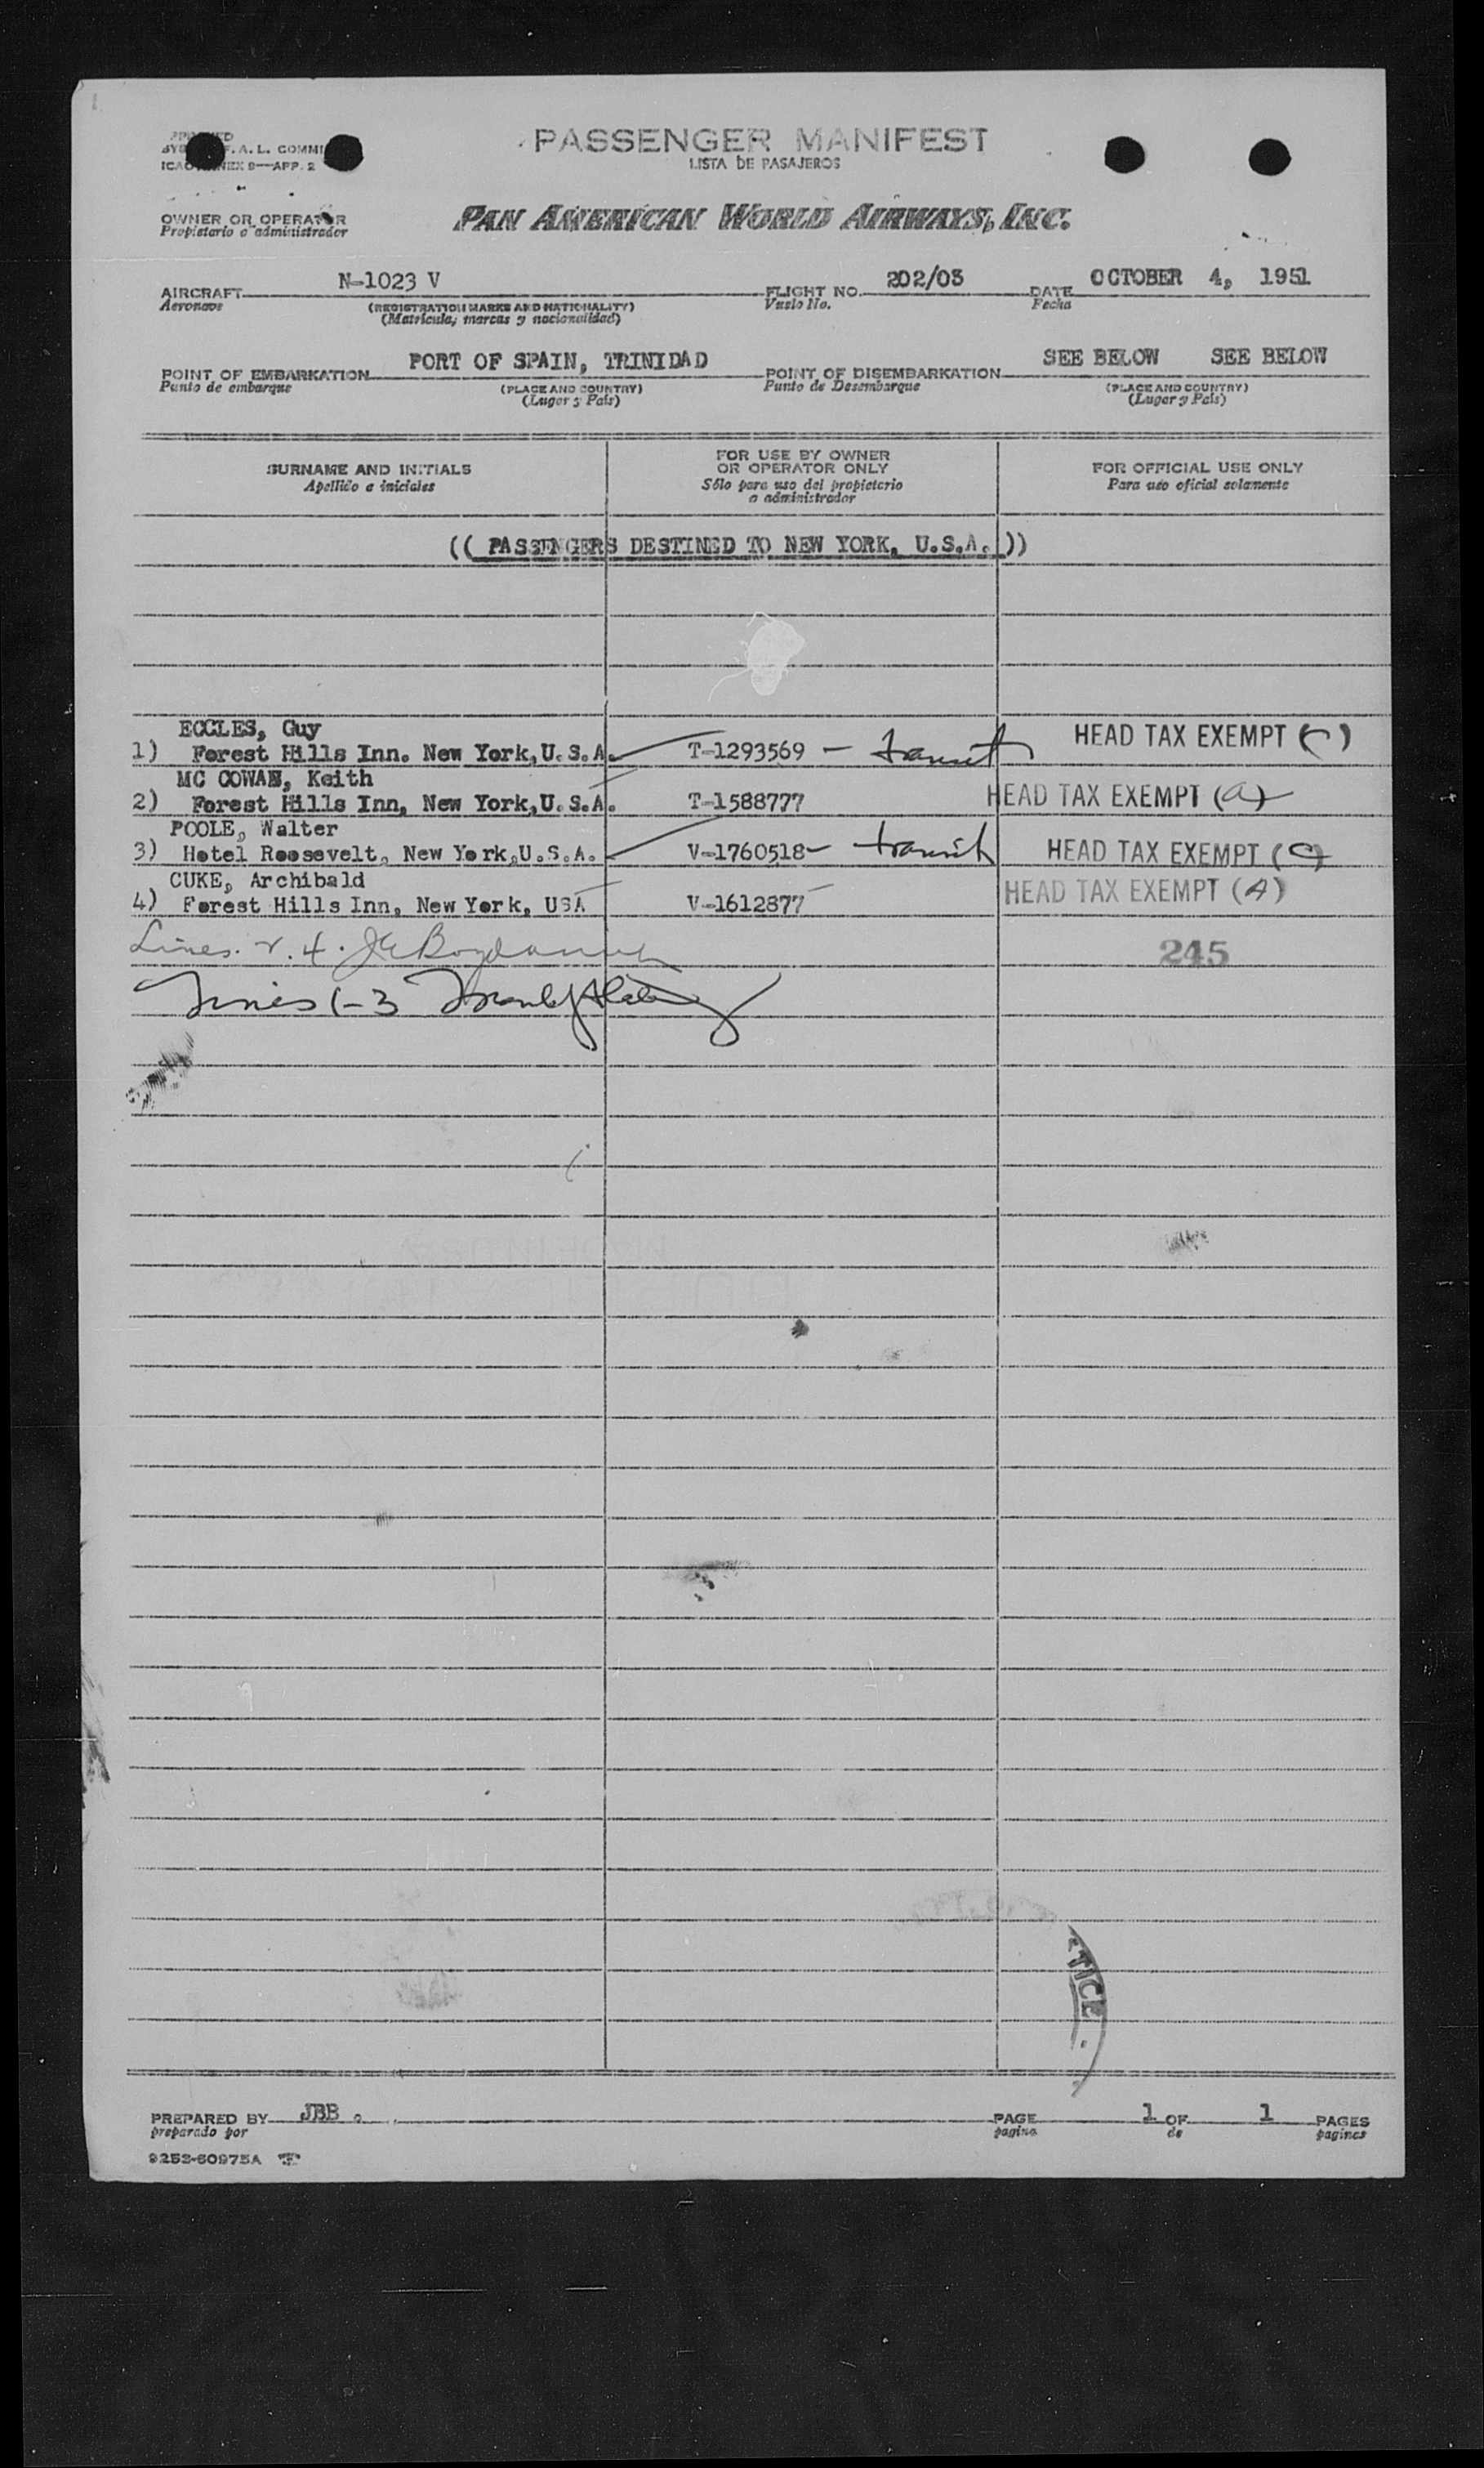 PASSENGER MANIFEST
LISTA DE PASAJEROS
F.A.L. COMMI
ICAO ANNEX 9—APP. 2
OWNER OR OPERATOR
Propietario o administrador
PAN AMERICAN WORLD AIRWAYS, INC.
AIRCRAFT N-1023 V FLIGHT NO. 202/03 DATE OCTOBER 4, 1951
Aeronave (REGISTRATION MARKS AND NATIONALITY) Vuelo No. Fecha
(Matricula, marcas y nacionalidad)
POINT OF EMBARKATION PORT OF SPAIN, TRINIDAD POINT OF DISEMBARKATION SEE BELOW SEE BELOW
Punto de embarque (PLACE AND COUNTRY) Punto de Desembarque (PLACE AND COUNTRY)
(Lugar y País) (Lugar y País)
SURNAME AND INITIALS FOR USE BY OWNER OR OPERATOR ONLY FOR OFFICIAL USE ONLY
Apellido e iniciales Sólo para uso del propietario o administrador Para uso oficial solamente
(( PASSENGERS DESTINED TO NEW YORK, U.S.A. ))
ECCLES, Guy
1) Forest Hills Inn. New York,U.S.A. T-1293569 — transit HEAD TAX EXEMPT (C)
MC COWAN, Keith
2) Forest Hills Inn, New York,U.S.A. T-1588777 HEAD TAX EXEMPT (a)
POOLE, Walter
3) Hotel Roosevelt, New York,U.S.A. V-1760518 — transit HEAD TAX EXEMPT (C)
CUKE, Archibald
4) Forest Hills Inn, New York, USA V-1612877 HEAD TAX EXEMPT (A)
Lines. 2. 4.
245
Lines 1-3
TICE
PREPARED BY JBB. PAGE 1 OF 1 PAGES
preparado por pagina de paginas
9253-60975A